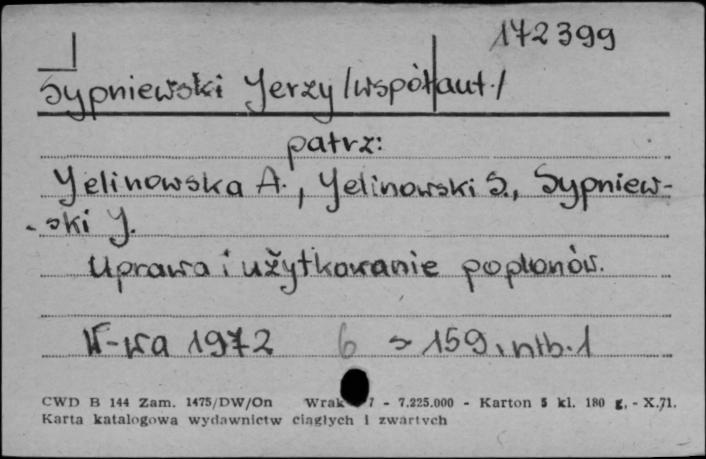 172399
Sypniewski Jerzy /współaut./
patrz:
Jelinowska A., Jelinowski S., Sypniew-
-ski J.
Uprawa i użytkowanie poplonów.
W-wa 1972 6 s 159, nlb. 1
CWD B 144 Zam. 1475/DW/On Wrak 7 - 7.225.000 - Karton 5 kl. 180 g. - X.71.
Karta katalogowa wydawnictw ciągłych i zwartych